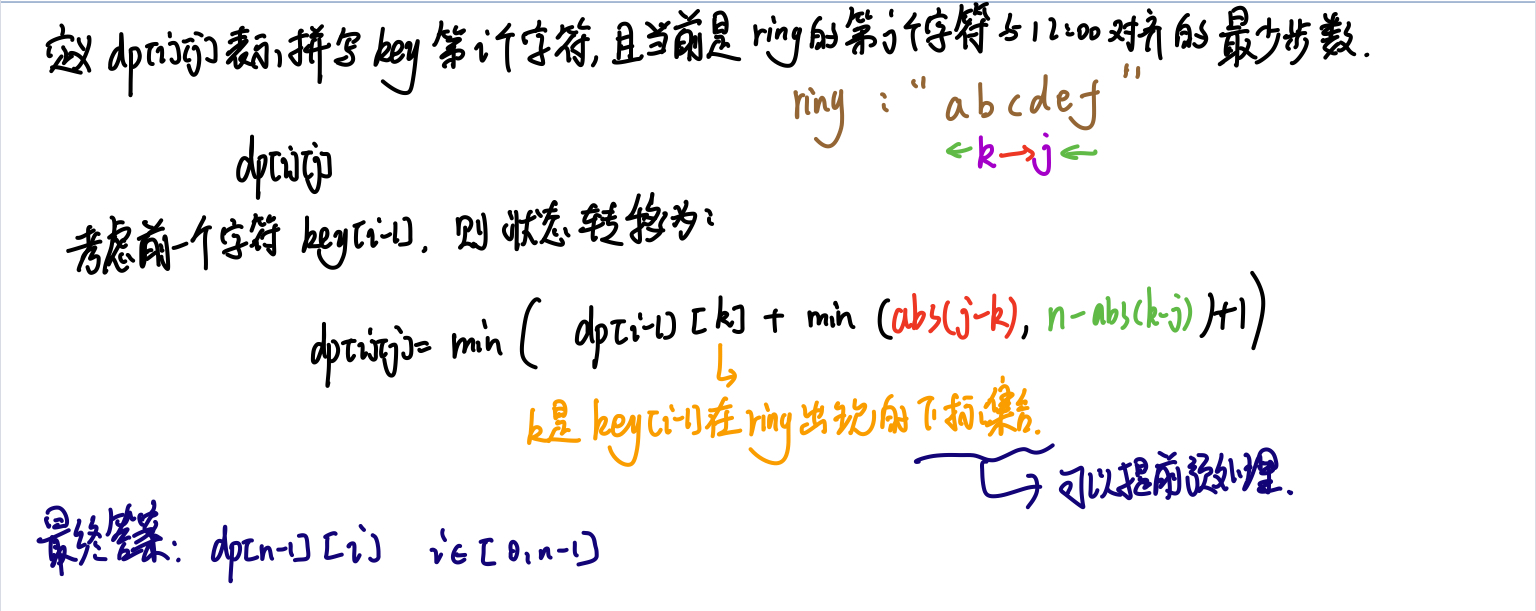 定义 dp[i][j] 表示,拼写 key 第 i 个字符,且当前是 ring 的第 j 个字符与 12:00 对齐的最少步数.
ring : " abcdef "
← k → j ←
dp[i][j]
考虑前一个字符 key[i-1], 则状态转移为:
dp[i][j] = min ( dp[i-1][k] + min (abs(j-k), n-abs(k-j))+1)
k是 key[i-1] 在 ring 出现的下标集合.
→ 可以提前预处理.
最终答案: dp[n-1][i] i∈[0,n-1]